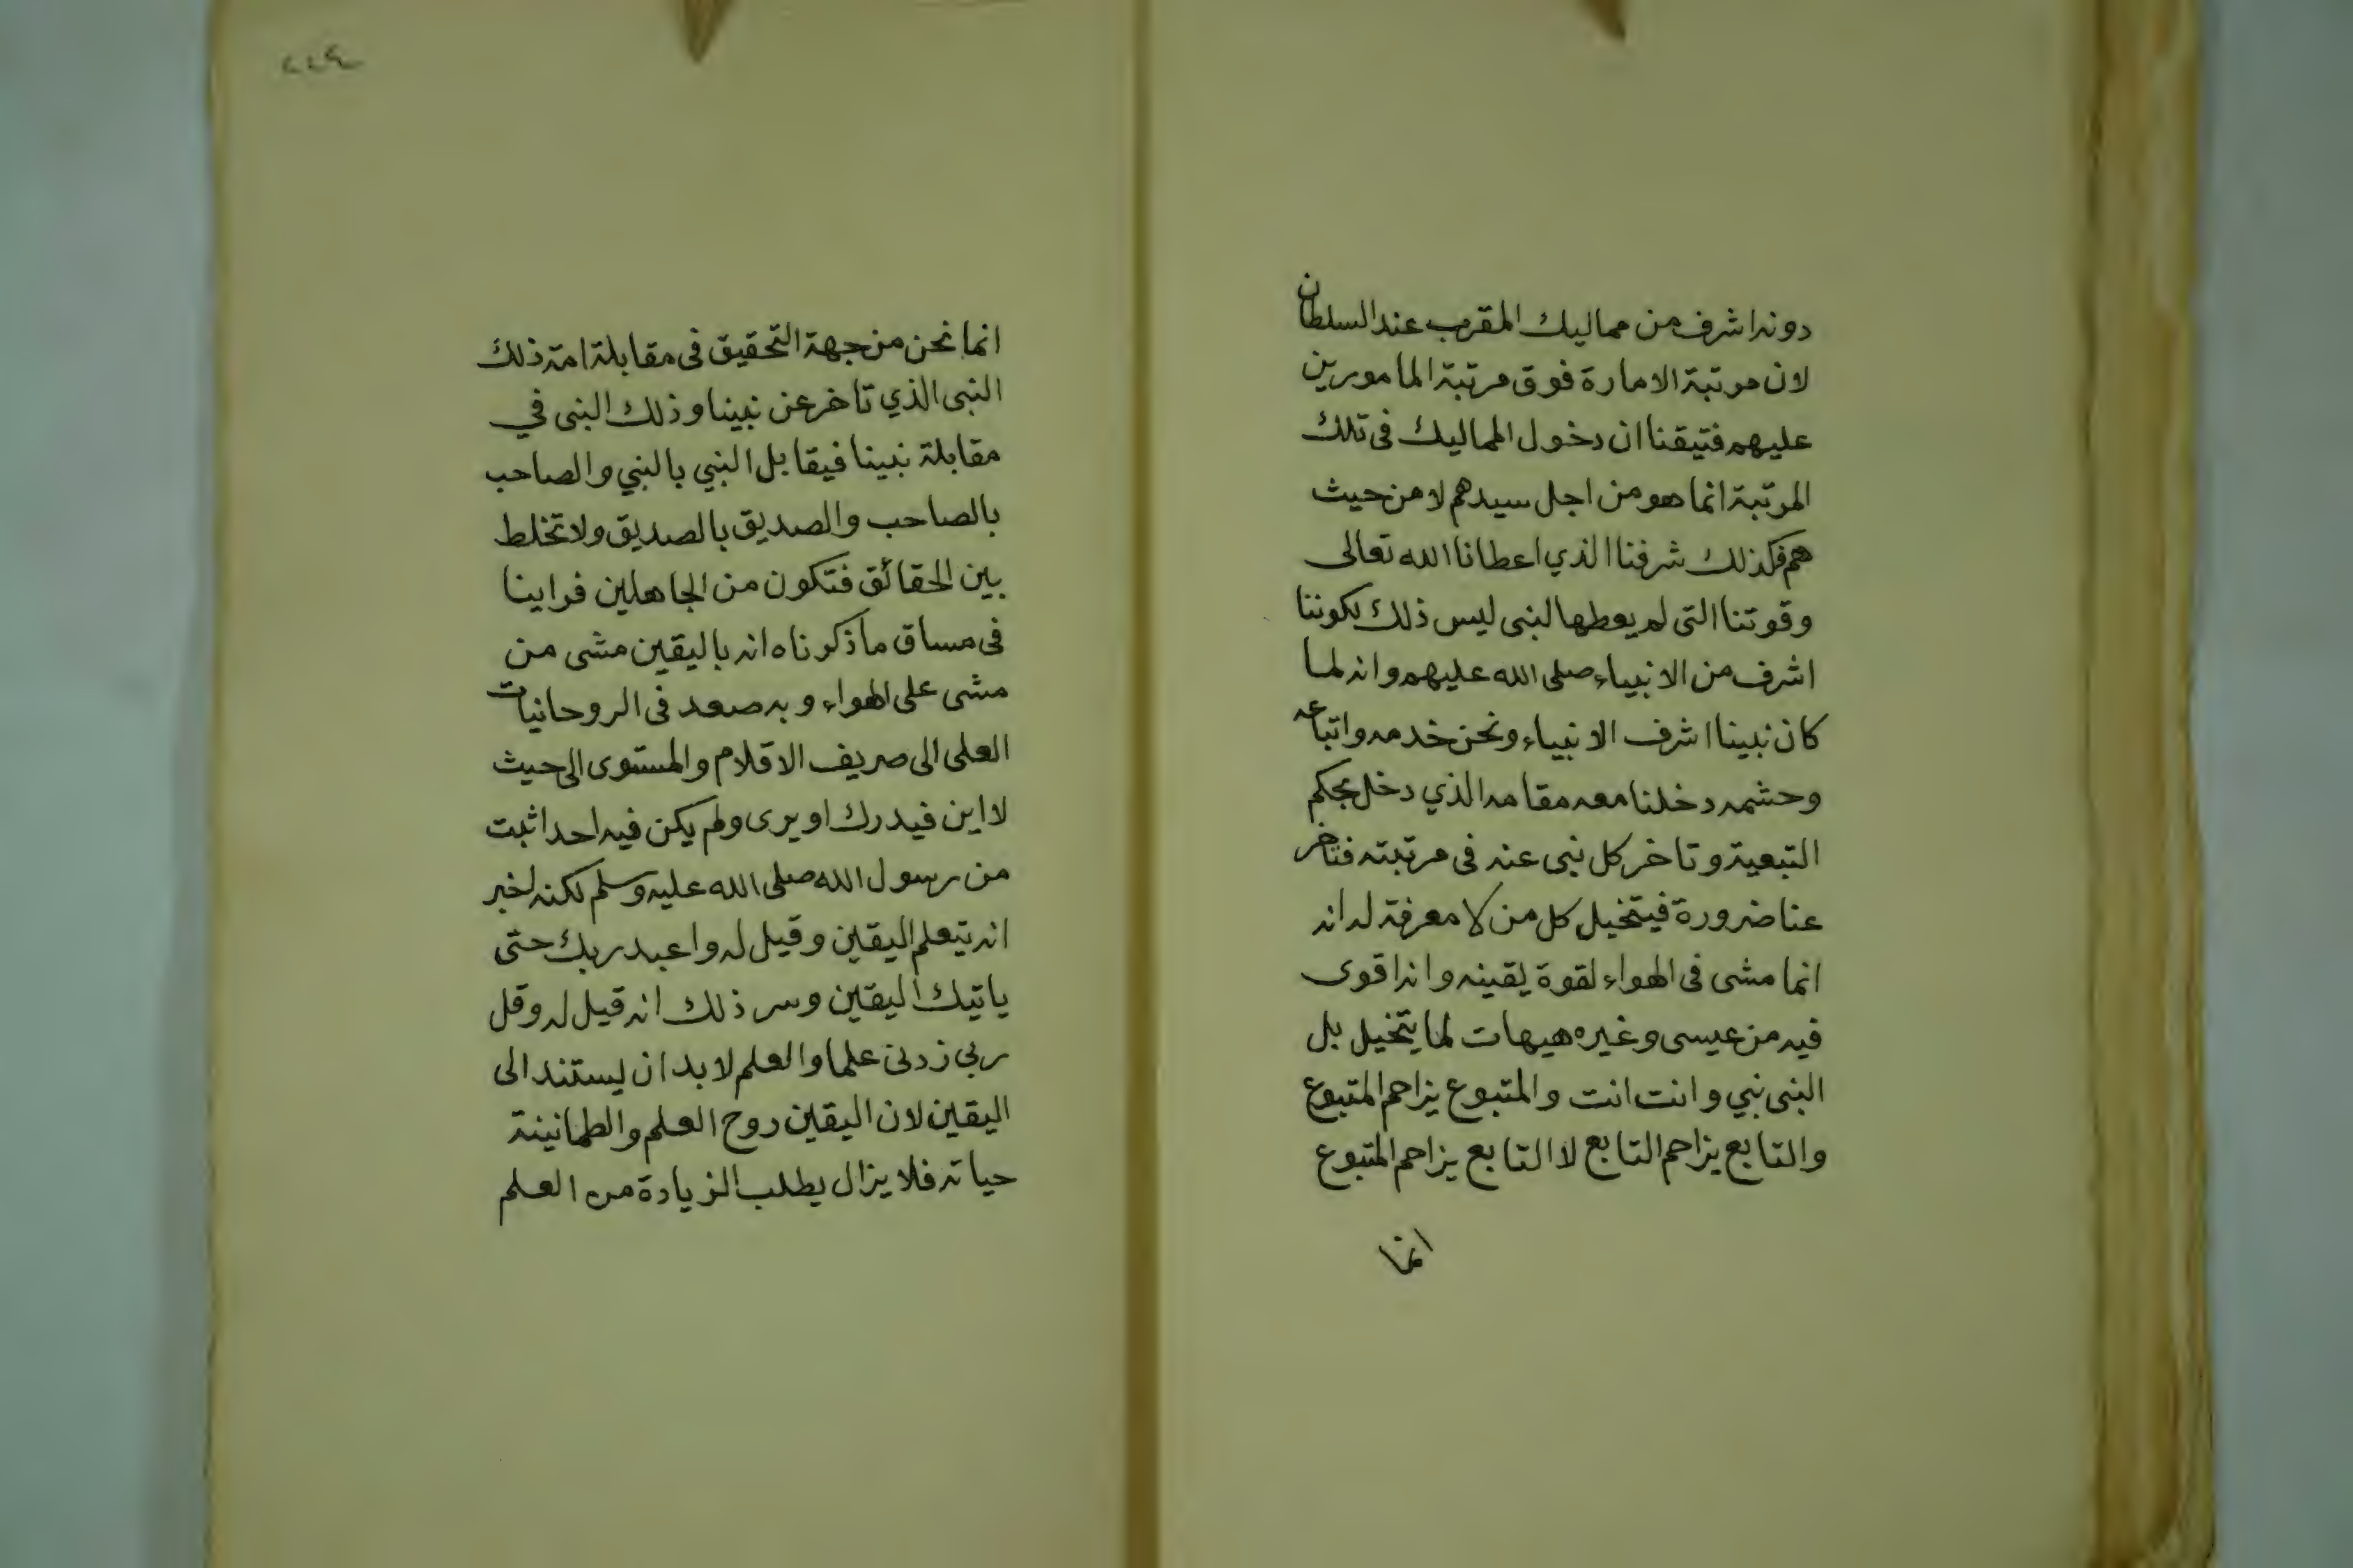 دونه اشرف من مماليك المقرب عند السلطان
لان مرتبة الامارة فوق مرتبة المامورين
عليهم فتيقنا ان دخول المماليك فى تلك
المرتبة انما هو من اجل سيدهم لا من حيث
هم فكذلك شرفنا الذي اعطانا الله تعالى
وقوتنا التى لم يعطها لنبى ليس ذلك لكوننا
اشرف من الانبياء صلى الله عليهم وانه لما
كان نبينا اشرف الانبياء ونحن خدمه واتباعه
وحشمه دخلنا معه مقامه الذي دخل بحكم
التبعية وتاخر كل نبى عنه فى مرتبته فتاخر
عنا ضرورة فيتخيل كل من لا معرفة له انه
انما مشى فى الهواء لقوة يقينه وانه اقوى
فيه من عيسى وغيره هيهات لما يتخيل بل
النبى نبي وانت انت والمتبوع يزاحم المتبوع
والتابع يزاحم التابع لا التابع يزاحم المتبوع
انما
انما نحن من جهة التحقيق فى مقابلة امة ذلك
النبى الذي تاخر عن نبينا وذلك النبى في
مقابلة نبينا فيقابل النبي بالنبي والصاحب
بالصاحب والصديق بالصديق ولا تخلط
بين الحقائق فتكون من الجاهلين فراينا
فى مساق ما ذكرناه انه باليقين مشى من
مشى على الهواء وبه صعد فى الروحانيات
العلى الى صريف الاقلام والمستوى الى حيث
لا اين فيدرك او يرى ولم يكن فيه احد اثبت
من رسول الله صلى الله عليه وسلم لكنه اخبر
انه يتعلم اليقين وقيل له واعبد ربك حتى
ياتيك اليقين وسر ذلك انه قيل له وقل
ربي زدنى علما والعلم لا بد ان يستند الى
اليقين لان اليقين روح العلم والطمانينة
حياته فلا يزال يطلب الزيادة من العلم